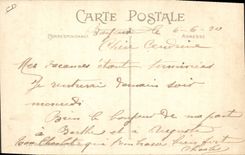 CARTE POSTALE
CORRESPONDANCE
ADRESSE
le 6-6-20
Chère Cendrine
Mes vacances étant terminées
Je rentrerai demain soir
mercredi
Bien le bonjour de ma part
à Berthe et à
ton Charlot qui t'embrasse bien fort
Charles